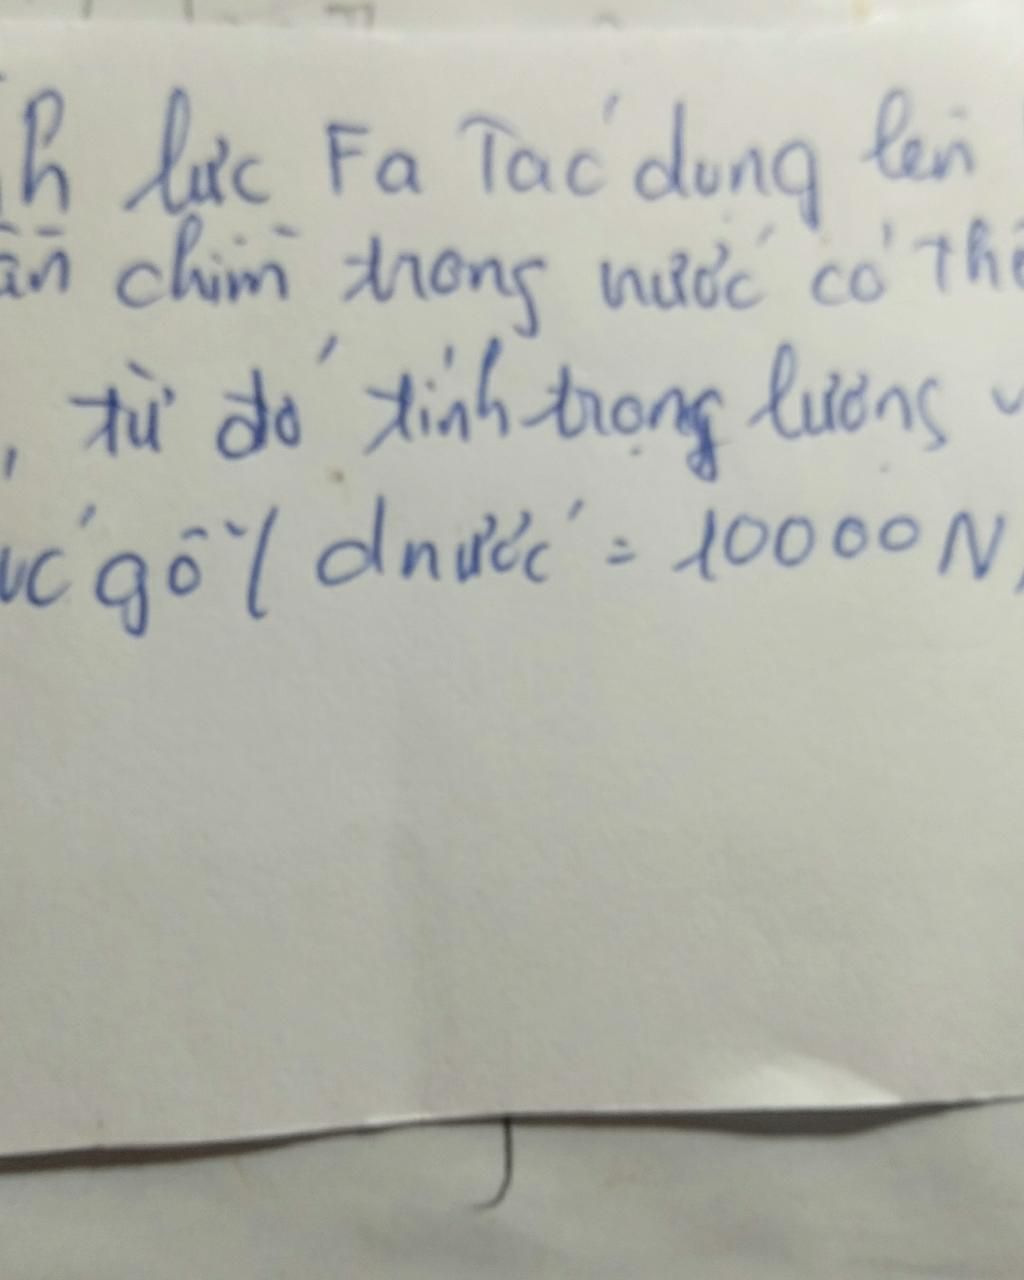 lực Fa Tác dụng lên
chìm trong nước có
từ đó tính trọng lương
gỗ / dnước = 10000 N